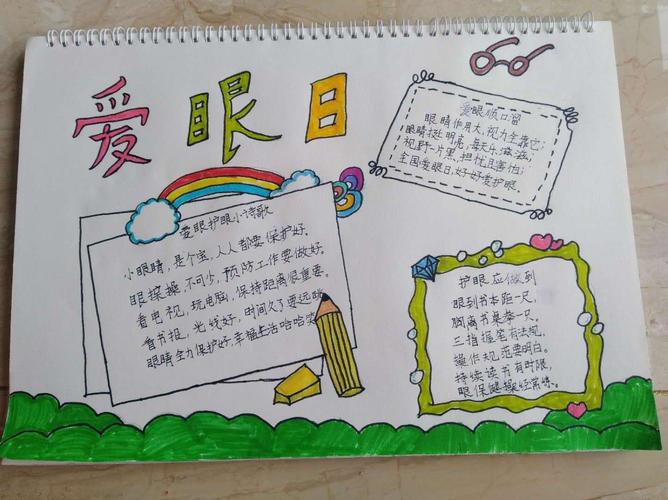 爱眼日
爱眼护眼小诗歌
小眼睛,是个宝,人人都要保护好。
眼操操,不可少,预防工作要做好。
看电视,玩电脑,保持距离很重要。
看书报,光线好,时间久了要远眺
眼睛全力保护好,幸福生活哈哈笑
爱眼顺口溜
眼睛作用大,视力全靠它;
眼睛挺明亮,每天乐滋滋;
视野一片黑,担忧且害怕;
全国爱眼日,好好爱护眼。
护眼应做到
眼到书本距一尺,
胸离书桌拳一只。
三指握笔有法规,
操作规范要明白。
持续读书有时限,
眼保健操经常练。